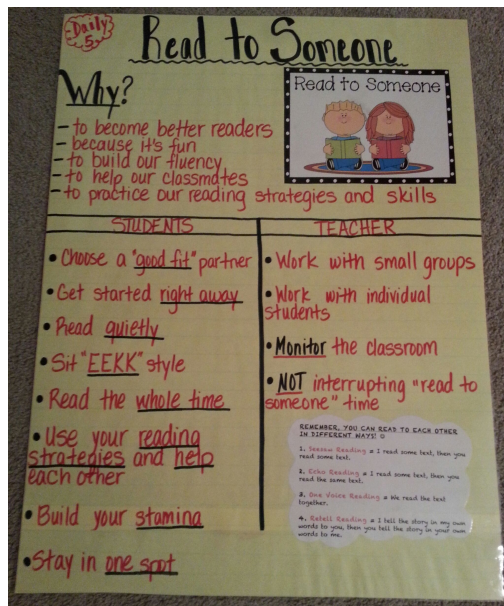 Daily
5
Read to Someone
Why?
Read to Someone
- to become better readers
- because it's fun
- to build our fluency
- to help our classmates
- to practice our reading strategies and skills
STUDENTS
• Choose a "good fit" partner
• Get started right away
• Read quietly
• Sit "EEKK" style
• Read the whole time
• Use your reading
strategies and help
each other
• Build your stamina
• Stay in one spot
TEACHER
• Work with small groups
• Work with individual
students
• Monitor the classroom
• NOT interrupting "read to
someone" time
REMEMBER, YOU CAN READ TO EACH OTHER
IN DIFFERENT WAYS! ☺
1. Season Reading = I read some text, then you
read some text.
2. Echo Reading = I read some text, then you
read the same text.
3. One Voice Reading = We read the text
together.
4. Retell Reading = I tell the story in my own
words to you, then you tell the story in your own
words to me.